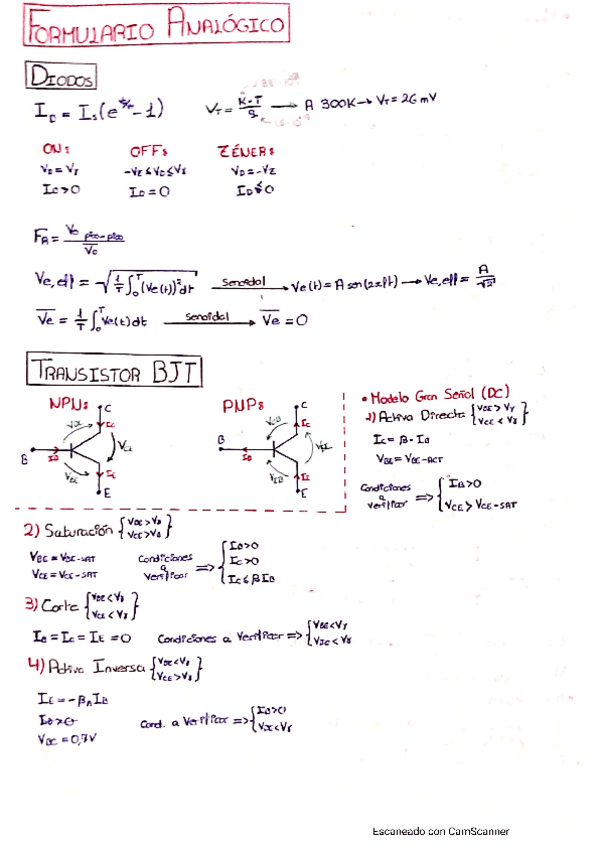 FORMULARIO ANALÓGICO
DIODOS
I_D = I_s(e^{V/V_T} - 1)   V_T = K·T/q → A 300K → V_T = 26 mV
ON:   OFF:   ZÉNER:
V_D = V_γ   -V_Z ≤ V_D ≤ V_γ   V_D = -V_Z
I_D > 0   I_D = 0   I_D ≤ 0
F_R = V_o pico-pico / V_o
Ve,eff = √(1/T ∫₀ᵀ (Ve(t))² dt)   senoidal → Ve(t) = A sen(2πft) → Ve,eff = A/√2
Ve = 1/T ∫₀ᵀ Ve(t) dt   senoidal → Ve = 0
TRANSISTOR BJT
NPN:   PNP:
C   C
B   B
E   E
• Modelo Gran Señal (DC)
1) Activa Directa {V_BE > V_γ
V_BC < V_γ}
I_C = β · I_B
V_BE = V_BE-ACT
Condiciones a verificar ⇒ {I_B > 0
V_CE > V_CE-SAT
2) Saturación {V_BE > V_γ
V_BC > V_γ}
V_BE = V_BE-SAT
V_CE = V_CE-SAT
Condiciones a verificar ⇒ {I_B > 0
I_C > 0
I_C ≤ β I_B
3) Corte {V_BE < V_γ
V_BC < V_γ}
I_B = I_C = I_E = 0   Condiciones a verificar ⇒ {V_BE < V_γ
V_BC < V_γ
4) Activa Inversa {V_BE < V_γ
V_BC > V_γ}
I_E = -β_R I_B
I_B > 0
V_BC = 0,7V
Cond. a verificar ⇒ {I_B > 0
Escaneado con CamScanner